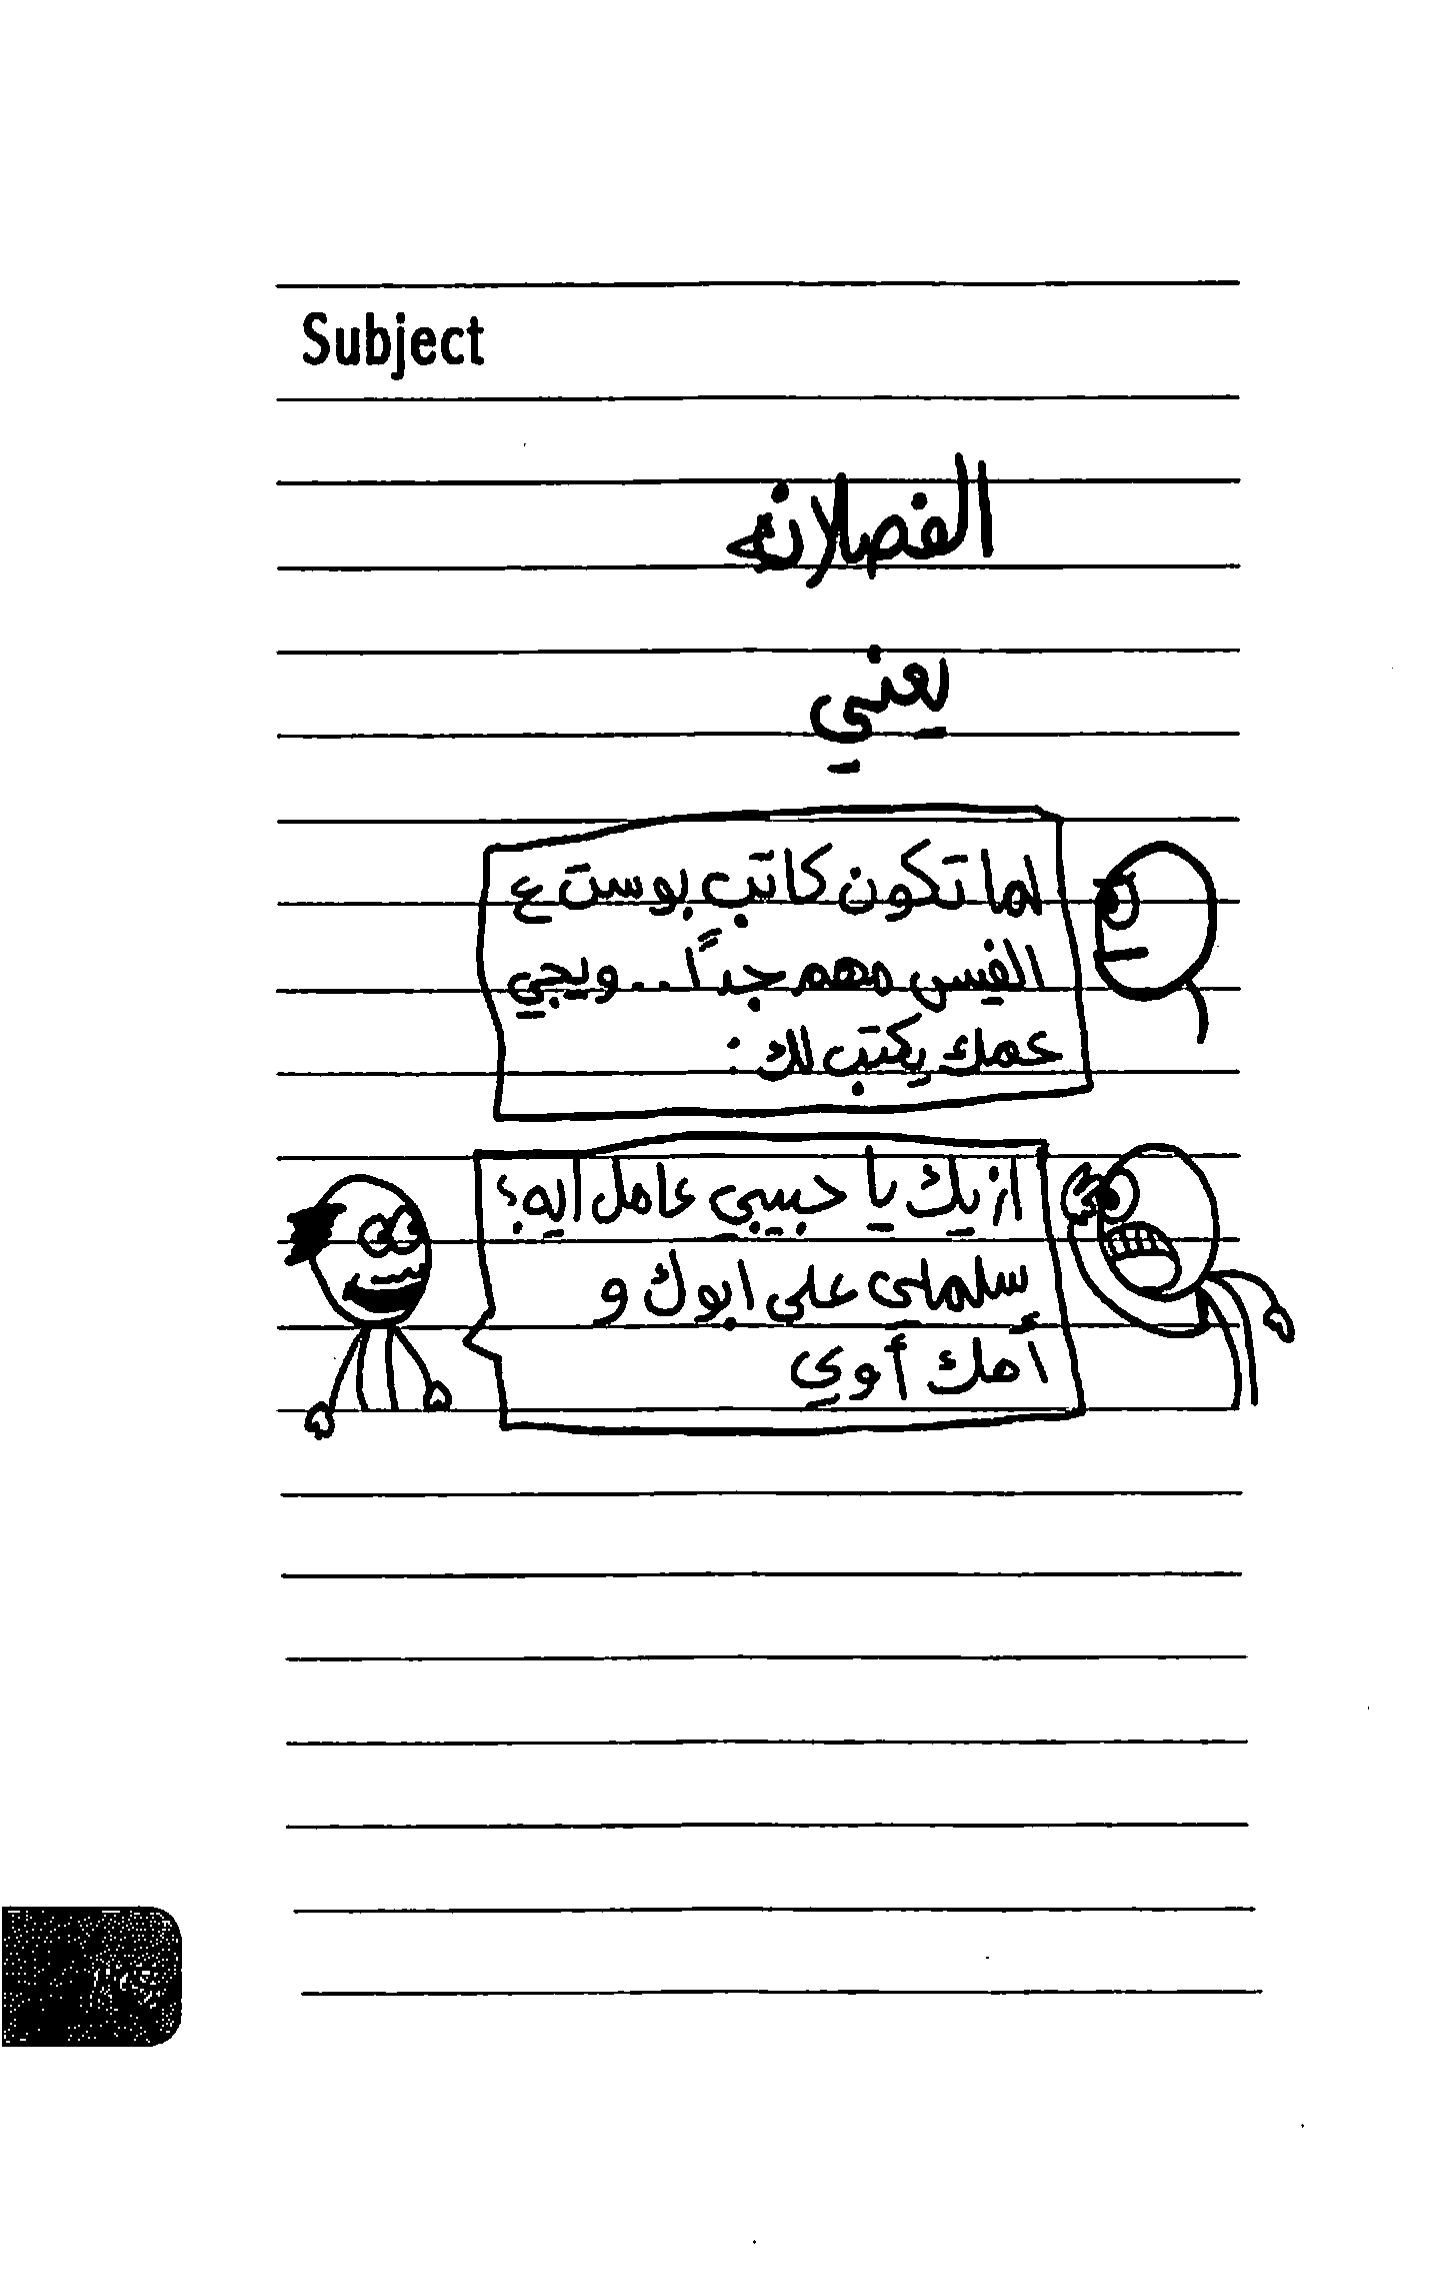 Subject
الفصلانه
يعني
لما تكون كاتب بوست ع
الفيس مهم جداً .. ويجي
عمك يكتب لك :
ازيك يا حبيبي عامل ايه؟
سلملي علي ابوك و
أمك أوي